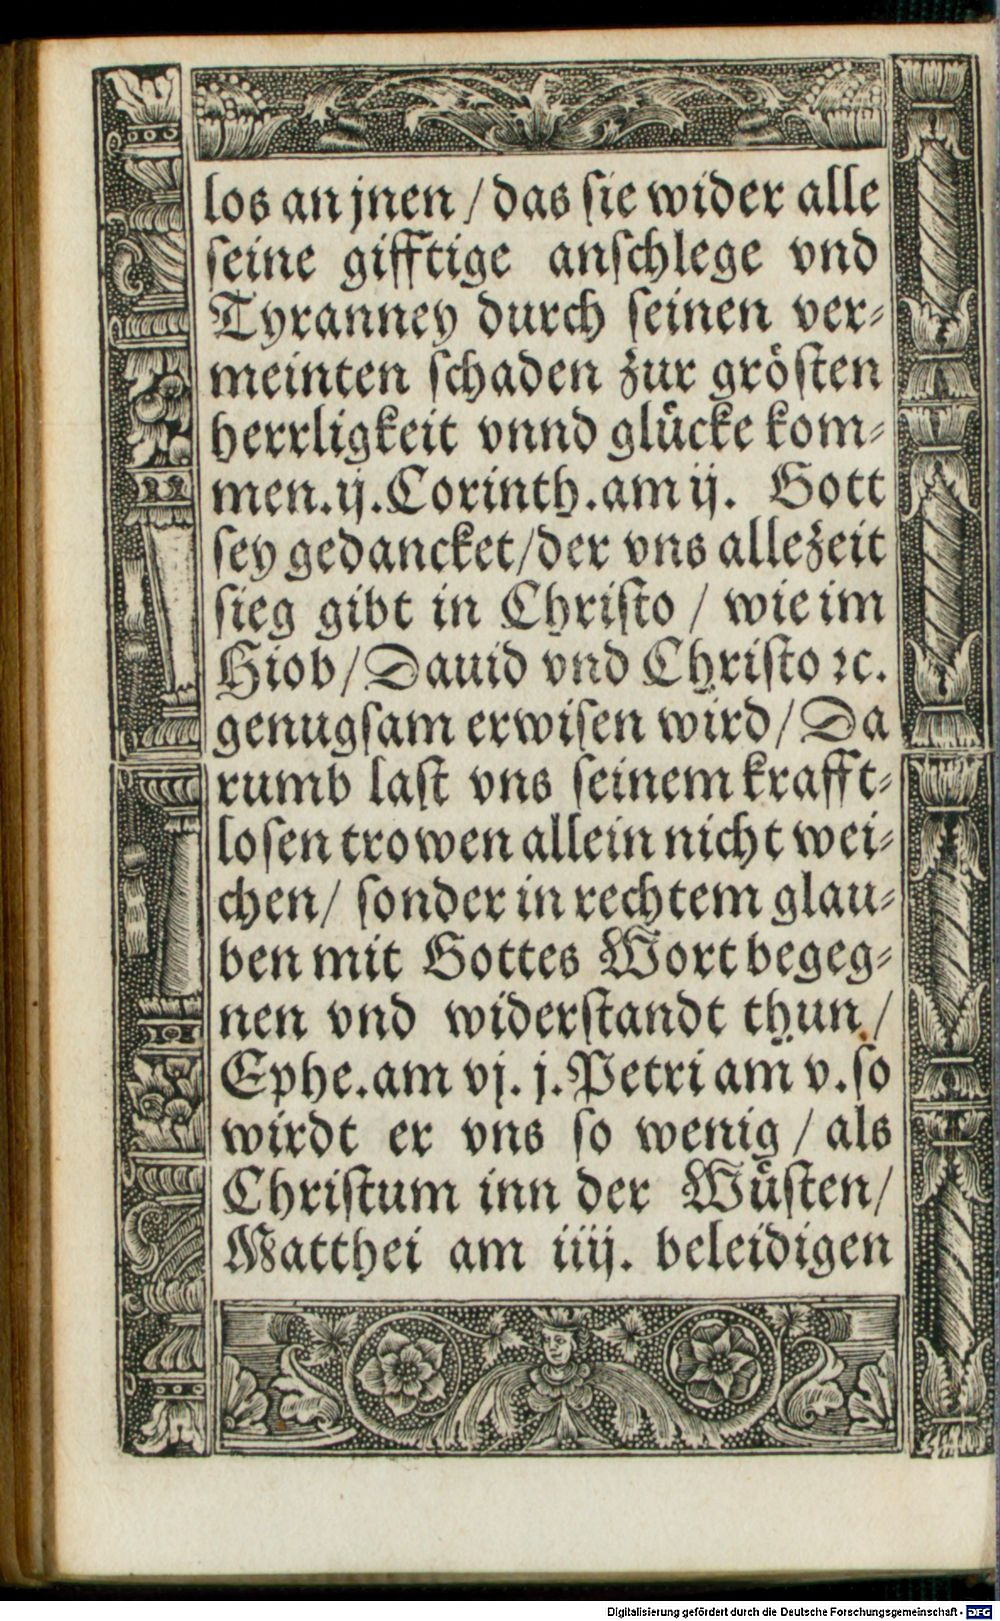 los an jnen / das sie wider alle
seine gifftige anschlege vnd
Tyranney durch seinen ver-
meinten schaden zur grösten
herrligkeit vnnd glücke kom-
men. ij. Corinth. am ij. Gott
sey gedancket / der vns allezeit
sieg gibt in Christo / wie im
Hiob / Dauid vnd Christo ꝛc.
genugsam erwisen wird / Da
rumb last vns seinem krafft-
losen trowen allein nicht wei-
chen / sonder in rechtem glau-
ben mit Gottes Wort begeg-
nen vnd widerstandt thun /
Ephe. am vj. j. Petri am v. so
wirdt er vns so wenig / als
Christum inn der Wüsten /
Matthei am iiij. beleidigen
Digitalisierung gefördert durch die Deutsche Forschungsgemeinschaft - DFG